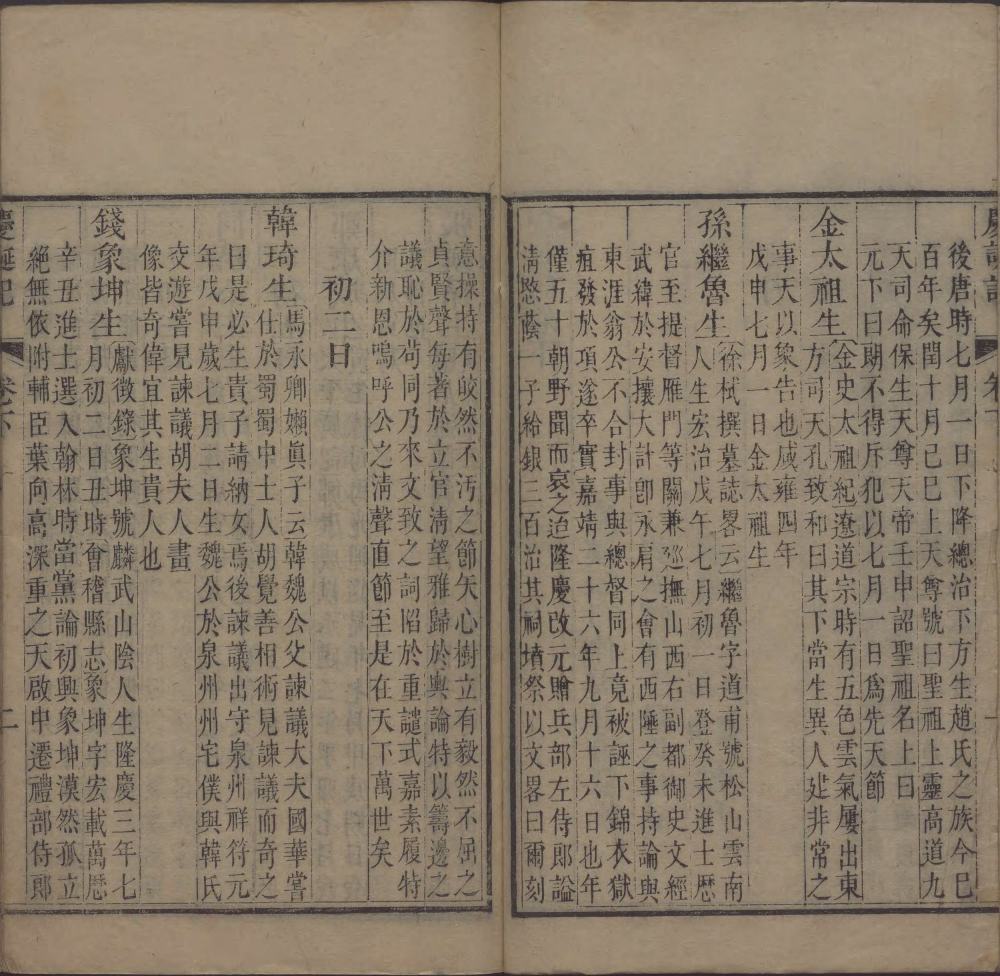 慶誕記 卷下 一
後唐時七月一日下降總治下方生趙氏之族今已
百年矣閏十月己巳上天尊號曰聖祖上靈高道九
天司侖保生天尊天帝壬申詔聖祖名上曰
元下曰朗不得斥犯以七月一日爲先天節
金太祖生金史太祖紀遼道宗時有五色雲氣屢出東
方司天孔致和曰其下當生異人建非常之
事天以象告也咸雍四年
戊申七月一日金太祖生
孫繼魯生徐栻撰墓誌畧云繼魯字道甫號松山雲南
人生宏治戊午七月初一日登癸未進士歷
官至提督雁門等關兼巡撫山西右副都御史文經
武緯於安攘大計卽永肩之會有西陲之事持論與
東涯翁公不合封事與總督同上竟被誣下錦衣獄
疽發於項遂卒實嘉靖二十六年九月十六日也年
僅五十朝野聞而哀之迨隆慶改元贈兵部左侍郎謚
清愍蔭一子給銀三百治其祠墳祭以文畧曰爾刻
意操持有皎然不汚之節矢心樹立有毅然不屈之
貞賢聲每著於立官淸望雅歸於輿論特以籌邊之
議恥於苟同乃來文致之詞陷於重譴式嘉素履特
介新恩嗚呼公之淸聲直節至是在天下萬世矣
初二日
韓琦生馬永卿嬾眞子云韓魏公父諫議大夫國華嘗
仕於蜀蜀中士人胡覺善相術見諫議而奇之
曰是必生貴子請納女焉後諫議出守泉州祥符元
年戊申歲七月二日生魏公於泉州州宅僕與韓氏
交遊嘗見諫議胡夫人畫
像皆奇偉宜其生貴人也
錢象坤生獻徵錄象坤號麟武山陰人生隆慶三年七
月初二日丑時會稽縣志象坤字宏載萬歷
辛丑進士選入翰林時當黨論初興象坤漠然孤立
絕無依附輔臣葉向高深重之天啟中遷禮部侍郎
慶誕記 卷下 二